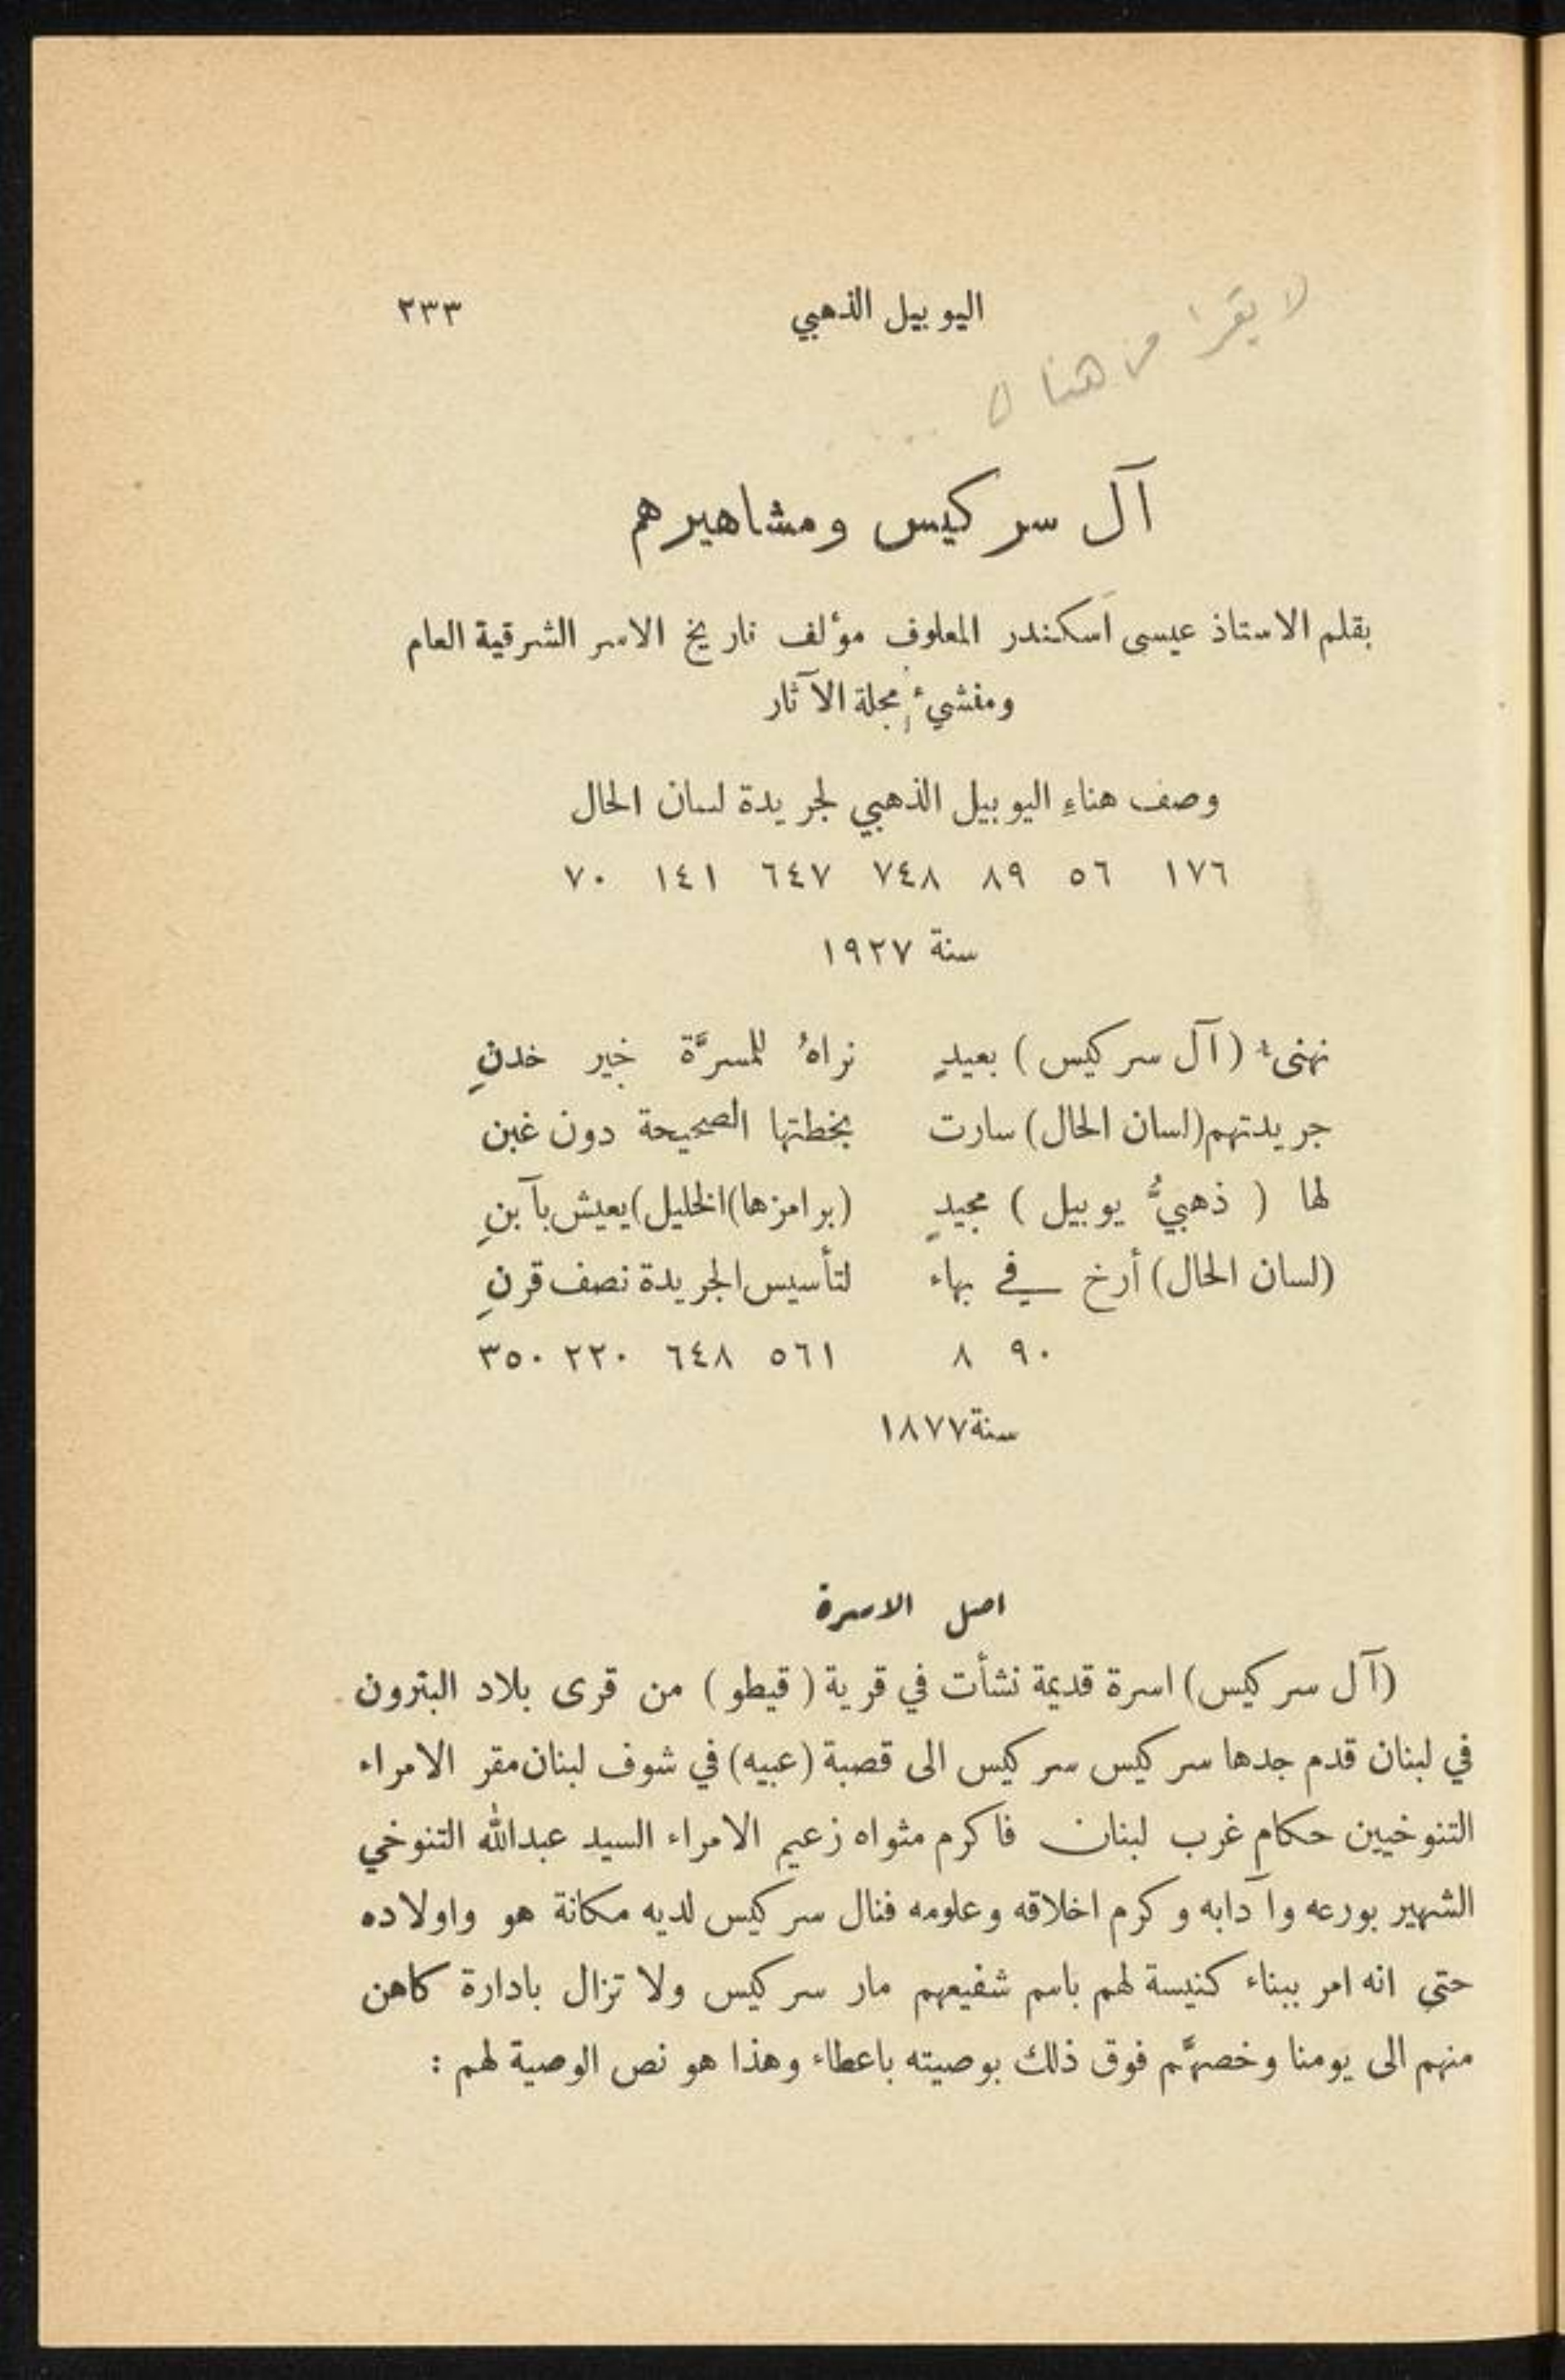 اليوبيل الذهبي ٢٣٣
لا يقرا من هنا
آل سركيس ومشاهيرهم
بقلم الاستاذ عيسى اسكندر المعلوف مؤلف تاريخ الاسر الشرقية العام
ومنشيء مجلة الآثار
وصف هناءِ اليوبيل الذهبي لجريدة لسان الحال
١٧٦ ٥٦ ٨٩ ٧٤٨ ٦٤٧ ١٤١ ٧٠
سنة ١٩٢٧
نهنىء (آل سركيس) بعيدٍ نراهُ للمسرَّة خير خدنِ
جريدتهم (لسان الحال) سارت بخطتها الصحيحة دون غبن
لها ( ذهبيُّ يوبيل ) مجيدٍ (برامزها)(الخليل) يعيش بآبنِ
(لسان الحال) أرخ في بهاء لتأسيس الجريدة نصف قرنِ
٩٠ ٨ ٥٦١ ٦٤٨ ٢٢٠ ٣٥٠
سنة ١٨٧٧
اصل الاسرة
(آل سركيس) اسرة قديمة نشأت في قرية (قيطو) من قرى بلاد البترون
في لبنان قدم جدها سركيس سركيس الى قصبة (عبيه) في شوف لبنان مقر الامراء
التنوخيين حكام غرب لبنان فاكرم مثواه زعيم الامراء السيد عبدالله التنوخي
الشهير بورعه وآدابه وكرم اخلاقه وعلومه فنال سركيس لديه مكانة هو واولاده
حتى انه امر ببناء كنيسة لهم باسم شفيعهم مار سركيس ولا تزال بادارة كاهن
منهم الى يومنا وخصهَّم فوق ذلك بوصيته باعطاء وهذا هو نص الوصية لهم :